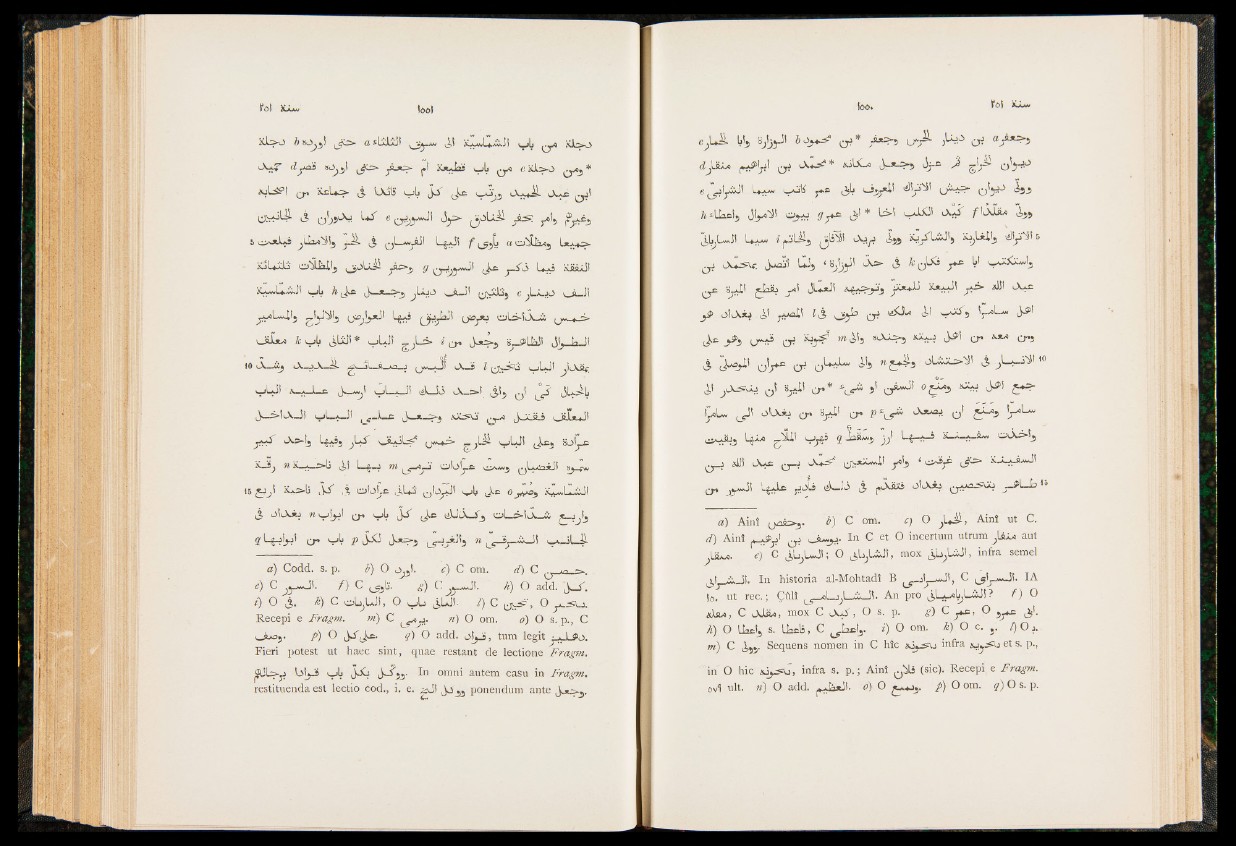 سنة ٢٥١ ١٥٥٠
وجعفر a بن دينار الحرس وجعفر * بن محمود b الوزارة وابا الحمار c
ديوان الخراج ثم عزل وجعل مكانه * محمد بن ابراهيم منقار d
وولّى ديوان جيش الاتراك المعروف بابى عمر كاتب سيما الشرابىّ e
وولّى مقلّدا f كيد الكلب اخا * ابى عمر g بيوت الاموال واعطاء h
5 الاتراك والمغاربة والشاكريّة وولّى بريد الآفاق والخاتم i سيما الساربانىّ
واستكتب ابا عمر فكان k فى حدّ الوزارة، ولمّا اتّصل بمحمّد بن
عبد الله خبر البيعة للمعتزّ وتوجيهه العمّال امر بقطع الميرة عن
اهل سامرّا وكتب الى مالك بن طوق فى l المصير الى بغداد هو
ومن معه من اهل بيته وجنده والى m نجوبة بن قيس وهو على
10 الانبار فى الاحتشاد والجمع n والى سليمان بن عمران الموصلىّ فى
جمع اهل بيته ومنع o السفن او شىء * من الميرة ان ينحدر الى
سامرّا ومنع ان يصعد شىء p من الميرة من بغداد الى سامرّا
واخذت سفينة فيها ارزّ وسقط q فهرب الملّاح منها وبقيت
السفينة حتى غرقت، وامر المستعين محمد بن عبد الله بن
15 طاهر بتحصين بغداد فتقدّم فى ذلك فأدير عليها السور من
a) Ainî وحفص. b) C om. c) O الحمار, Ainî ut C.
d) Ainî يوسف بن ابرهيم. In C et O incertum utrum منقار aut
; O mox infra semel
In historia al-Mohtadî B C IA
ut rec.; An pro f) O
mox C O s. p. g) C عمر, O
h) O s. C i) O om. k) O c. و. l) O ب.
m) C وولى. Sequens nomen in C hîc infra et s. p.,
in O hic infra s. p.; Ainî (sic). Recepi e Fragm.
ult. n) O add. العظيم. o) O p) O om. q) O s. p.
سنة ٢٥١ ١٥٥١
دجلة من باب الشمّاسيّة الى سوق الثلثاء a حتى اورده b دجلة
* ومن دجلة c من باب قطيعة امّ جعفر حتى اورده قصر d حميد
ابن عبد الحميد ورتّب على كلّ باب قائدا فى جماعة من اصحابه
وغيرهم وامر بحفر الخنادق حول السورين e كما يدوران فى الجانبين
5 جميعا ومظلّات a يأوى f اليها الفرسان فى الحرّ والامطار فبلغت
النفقة فيما ذكر على السورين g وحفر الخنادق والمظلّات ثلثمائة
الف دينار e وثلثين الف دينار وجعل على h باب الشمّاسيّة
خمس شدّاخات بعرض الطريق فيها العوارض والالواح والمسامير
الطوال الظاهرة وجُعل من i خارج الباب * الثانى باب k معلّق
10 بمقدار الباب ثخين l قد أُلبس بصفائح حديد وشدّ
بالحبال كى ان وافى احد ذلك الباب أرسل عليه الباب
المعلّق فقتل من تحته وجعل على الباب الداخل
عرّادة وعلى الباب الخارج خمس مجانيق كبار وفيها واحد كبير
سمّوه الغضبان وستّ عرّادات ترمى m بها الى ناحية n رقّة
15 الشمّاسيّة وصُيّر o على باب البردان ثمانى عرّادات فى كلّ ناحية اربع
واربع شدّاخات وكذلك على كلّ باب من ابواب n بغداد فى
الجانب الشرقىّ n والغربىّ وجعل لكلّ p باب من ابوابها q
a) Codd. s. p. b) O اورد. c) C om. d) C
e) C السور. f) C g) C السور. h) O add. كل.
i) O فى. k) C O l) C O
Recepi e Fragm. m) C يرمى. n) O om. o) O s. p., C
p) O على كل. q) O add. tum legit
Fieri potest ut haec sint, quae restant de lectione Fragm.
In omni autem casu in Fragm.
restituenda est lectio cod., i. e. ponendum ante وجعل.